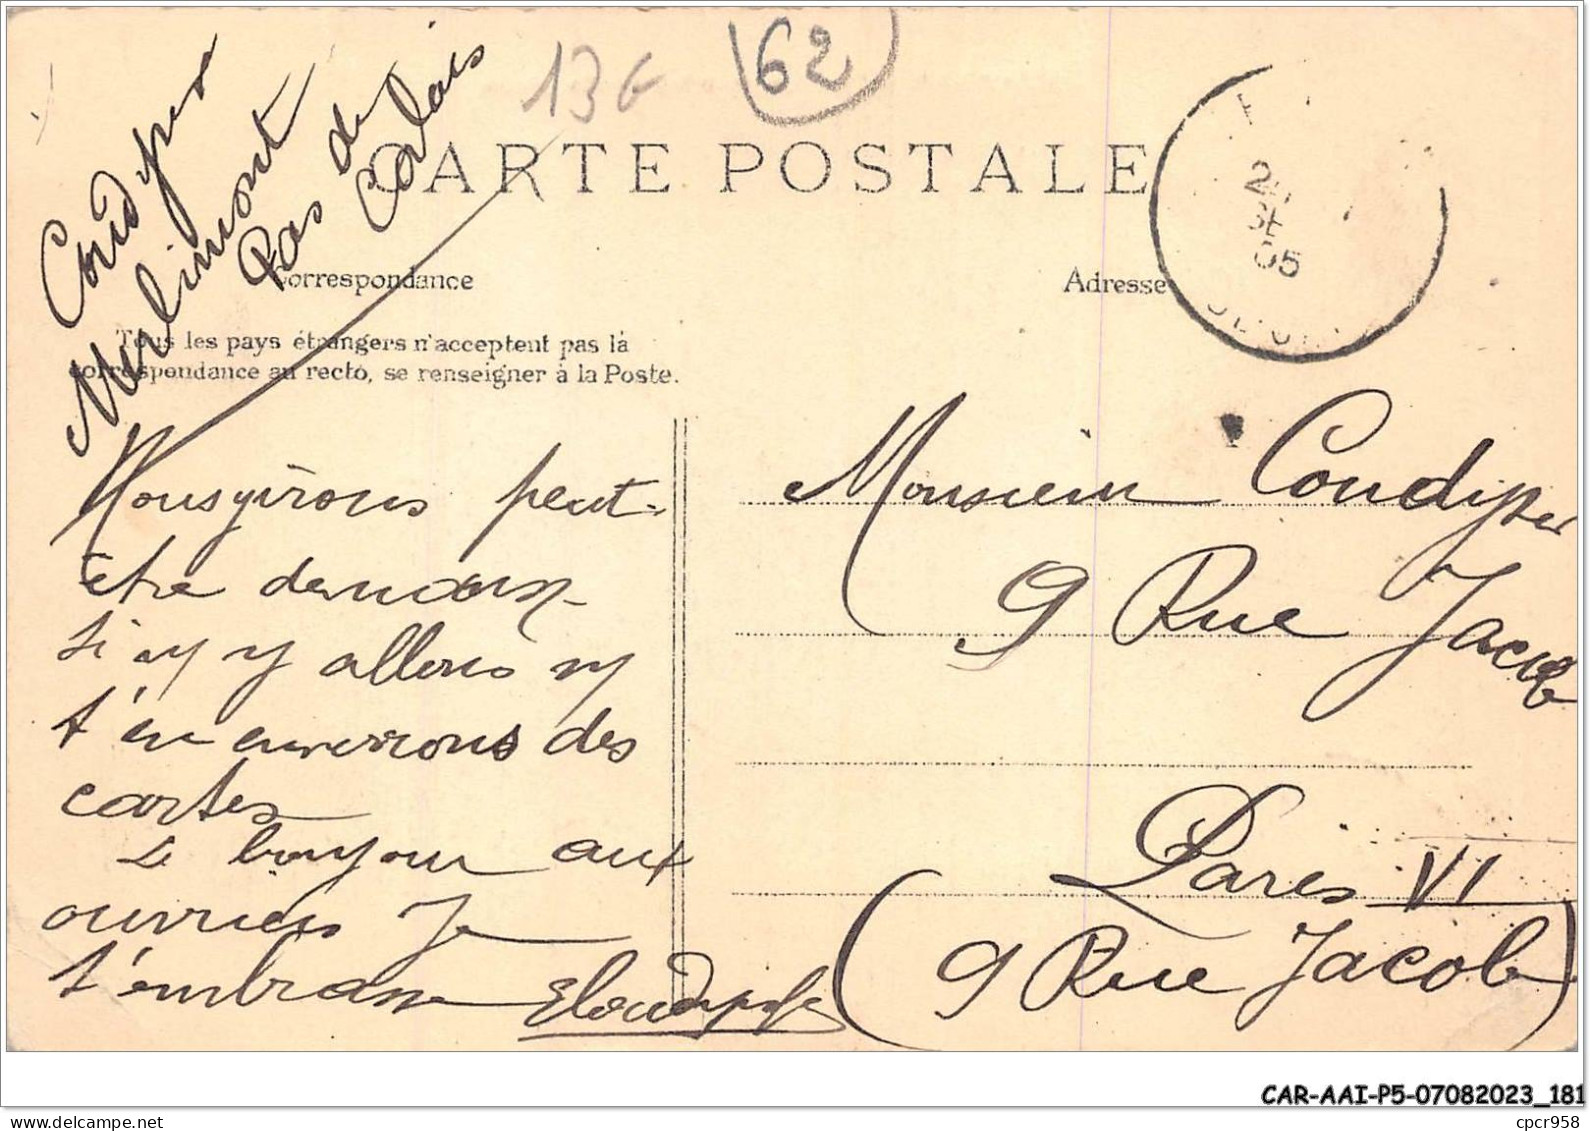 13€
62
CARTE POSTALE
Merlimont
Pas de
Calais
Correspondance
Adresse
Tous les pays étrangers n'acceptent pas la
correspondance au recto, se renseigner à la Poste.
24
SE
05
Nous y irons peut-
être demain
si y allons
t'en enverrons des
cartes
Le bonjour aux
ouvriers Je
t'embrasse
Monsieur
9 Rue Jacob
Paris VI
(9 Rue Jacob)
CAR-AAI-P5-07082023_181
cpcr958